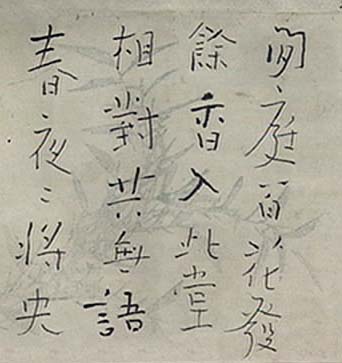 間庭百花發
餘香入此堂
相對共無語
春夜〻将央